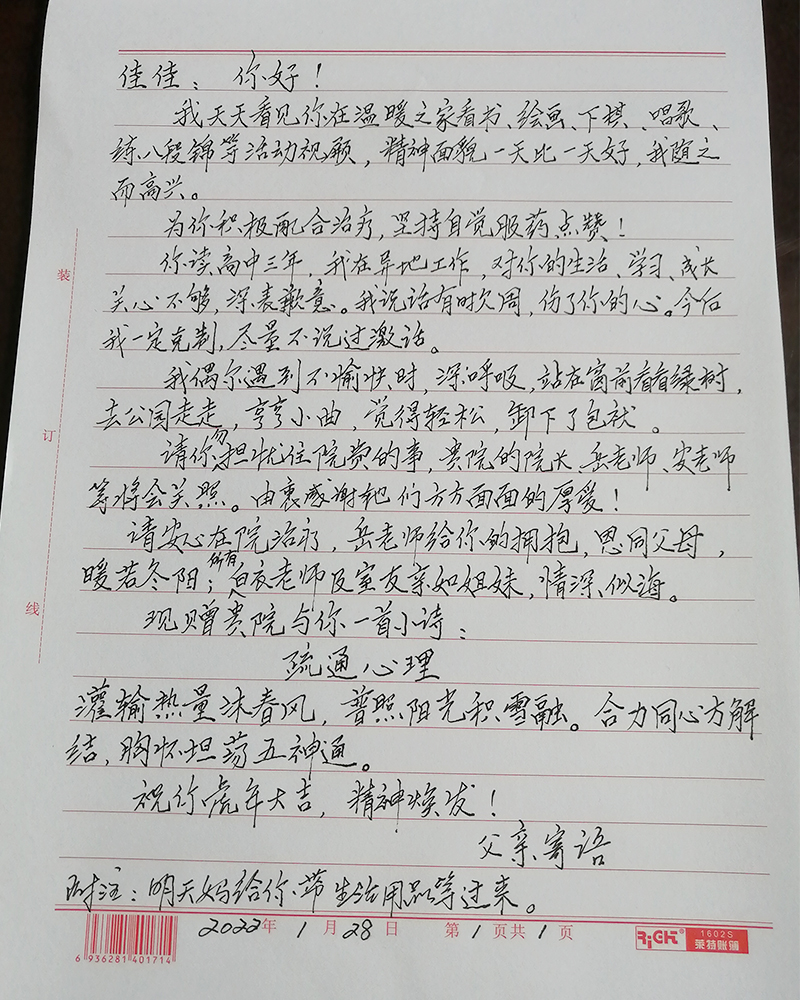 佳佳：你好！
我天天看见你在温暖之家看书、绘画、下棋、唱歌、
练八段锦等活动视频，精神面貌一天比一天好，我随之
而高兴。
为你积极配合治疗，坚持自觉服药点赞！
你读高中三年，我在异地工作，对你的生活、学习、成长
关心不够，深表歉意。我说话有时欠周，伤了你的心。今后
我一定克制，尽量不说过激话。
我偶尔遇到不愉快时，深呼吸，站在窗前看看绿树，
去公园走走，亨亨小曲，觉得轻松，卸下了包袱。
请你勿担忧住院费的事，贵院的院长、岳老师、安老师
等将会关照。由衷感谢她们方方面面的厚爱！
请安心在院治疗，岳老师给你的拥抱，恩同父母，
暖若冬阳；所有白衣老师及室友亲如姐妹，情深似海。
现赠贵院与你一首小诗：
疏通心理
灌输热量沐春风，普照阳光积雪融。合力同心方解
结，胸怀坦荡五神通。
祝你虎年大吉，精神焕发！
父亲寄语
附注：明天妈给你带生活用品等过来。
2022年1月28日 第1页共1页
装
订
线
6 936281 401714
RiCH 1602S
莱特账簿